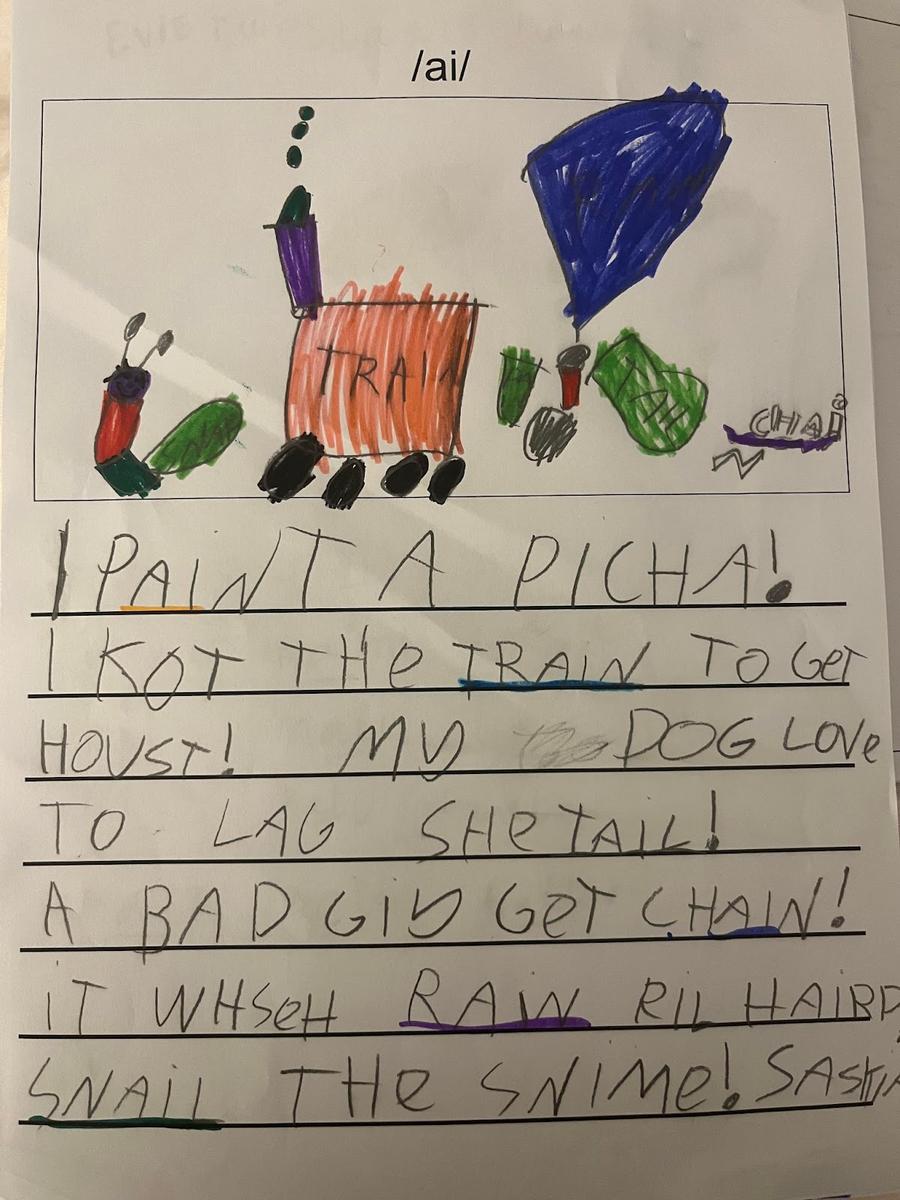 /ai/
TRAIN
CHAi
I PAINT A PICHA!
I KOT THe TRAIN TO GeT
HOUST! MY DOG LOVe
TO LAG SHe TAIL!
A BAD GiY GeT CHAIN!
iT WHSeH RAIN RIL HAIRD
SNAil THe SNIMe! SASKIA